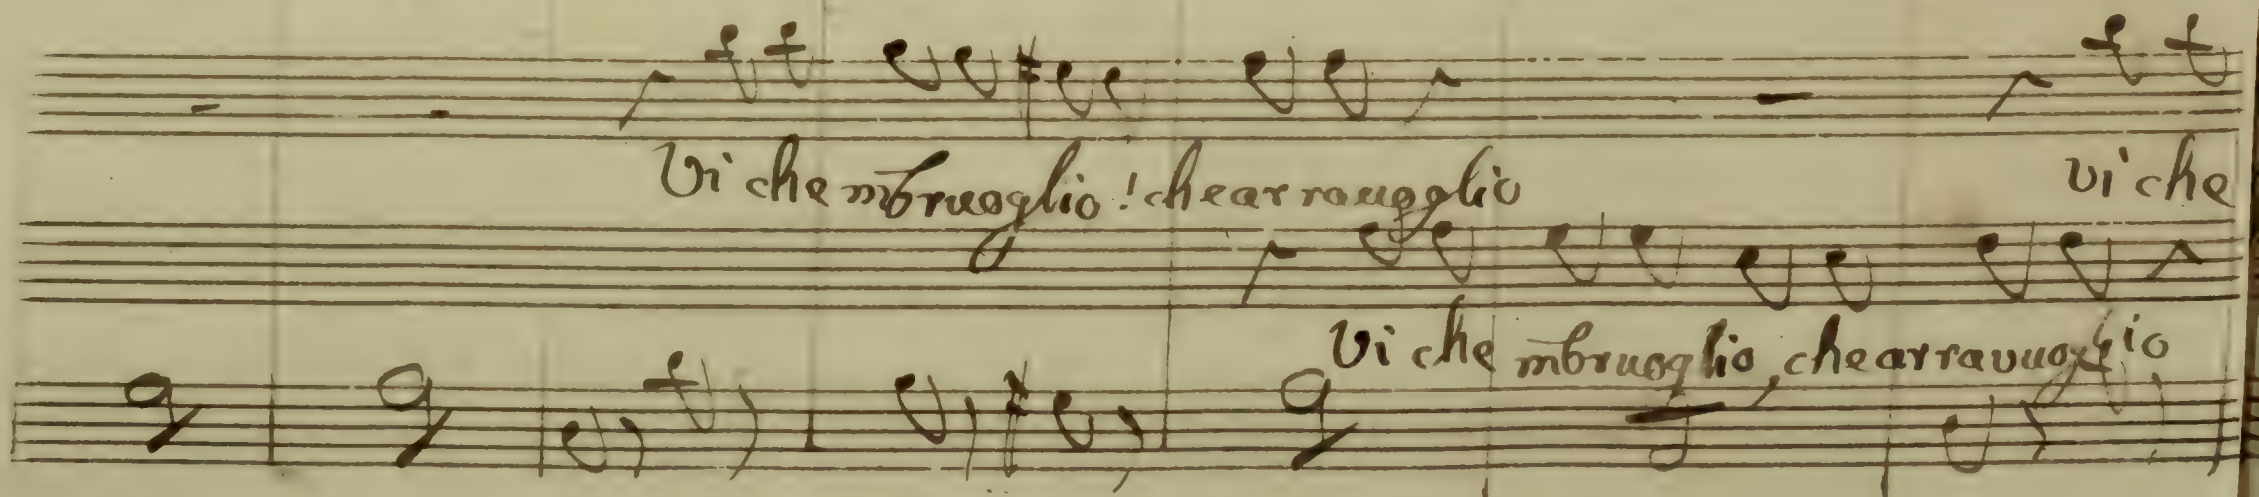 Vi che mbruoglio! che arravuoglio vi che
Vi che mbruoglio, che arravuoglio